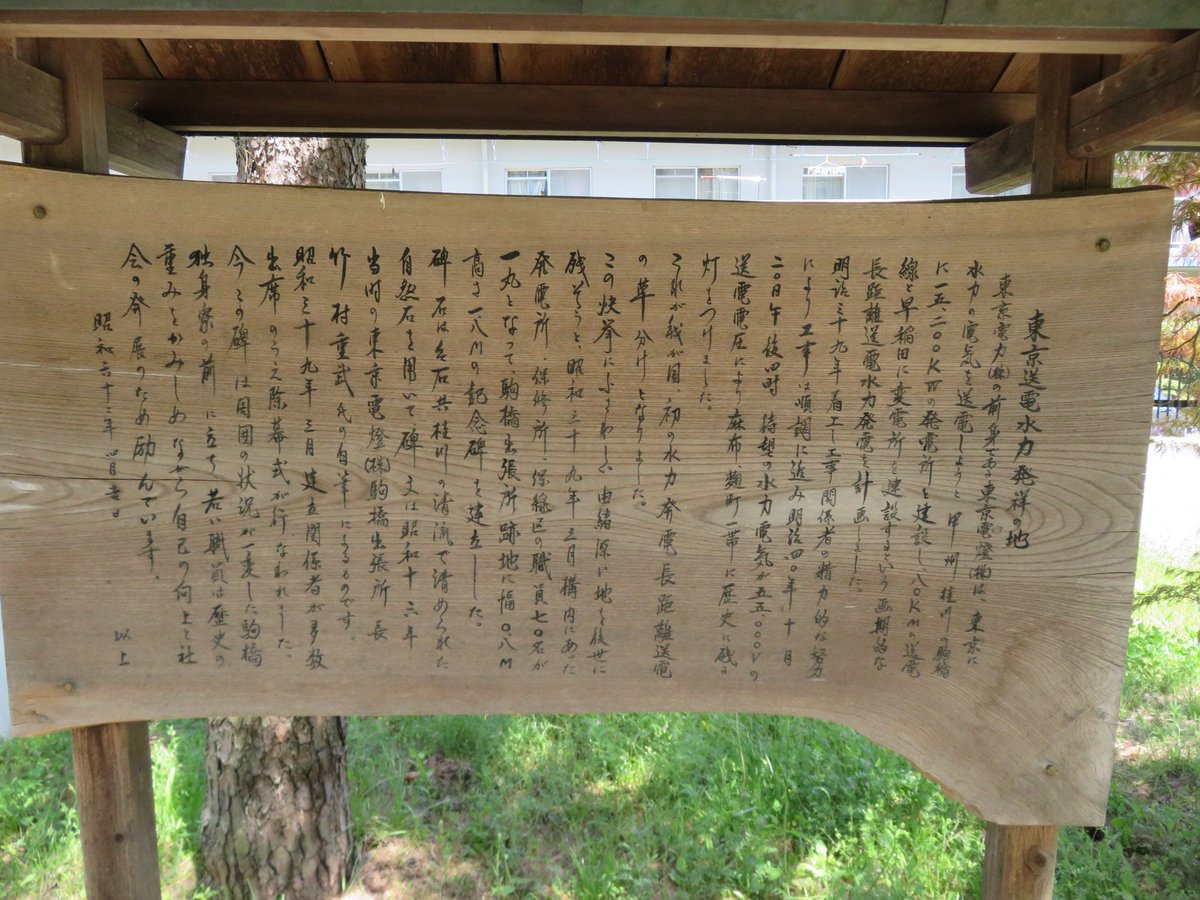 東京送電水力発祥の地
東京電力(株)の前身である東京電燈(株)は、東京に
水力の電気を送電しようと甲州桂川の駒橋
に一五、二〇〇KWの発電所を建設し、八〇KMの送電
線と早稲田に変電所を建設するという画期的な
長距離送電水力発電を計画しました。
明治三十九年着工し工事関係者の精力的な努力
により工事は順調に進み明治四〇年十月
二〇日午後四時 待望の水力電気が五五、〇〇〇Vの
送電電圧により麻布、麹町一帯に歴史に残る
灯をつけました。
これが我が国、初の水力発電長距離送電
の草分けとなりました。
この快挙にふさわしい由緒深い地を後世に
残そうと、昭和三十九年三月構内にあた
発電所、保修所、保線区の職員七〇名が
一丸となって、駒橋出張所跡地に幅一・〇八M
高さ一・八Mの記念碑を建立しました。
碑石は台石共桂川の清流で清められた
自然石を用いて碑文は昭和十六年
当時の東京電燈(株)駒橋出張所長
竹村重武氏の自筆によるものです。
昭和三十九年三月建立関係者が多数
出席のうえ除幕式が行なわれました。
今この碑は周囲の状況が一変した駒橋
独身寮の前に立ち若い職員は歴史の
重みをかみしめながら自己の向上と社
会の発展のため励んでいます。
以上
昭和六十三年四月吉日